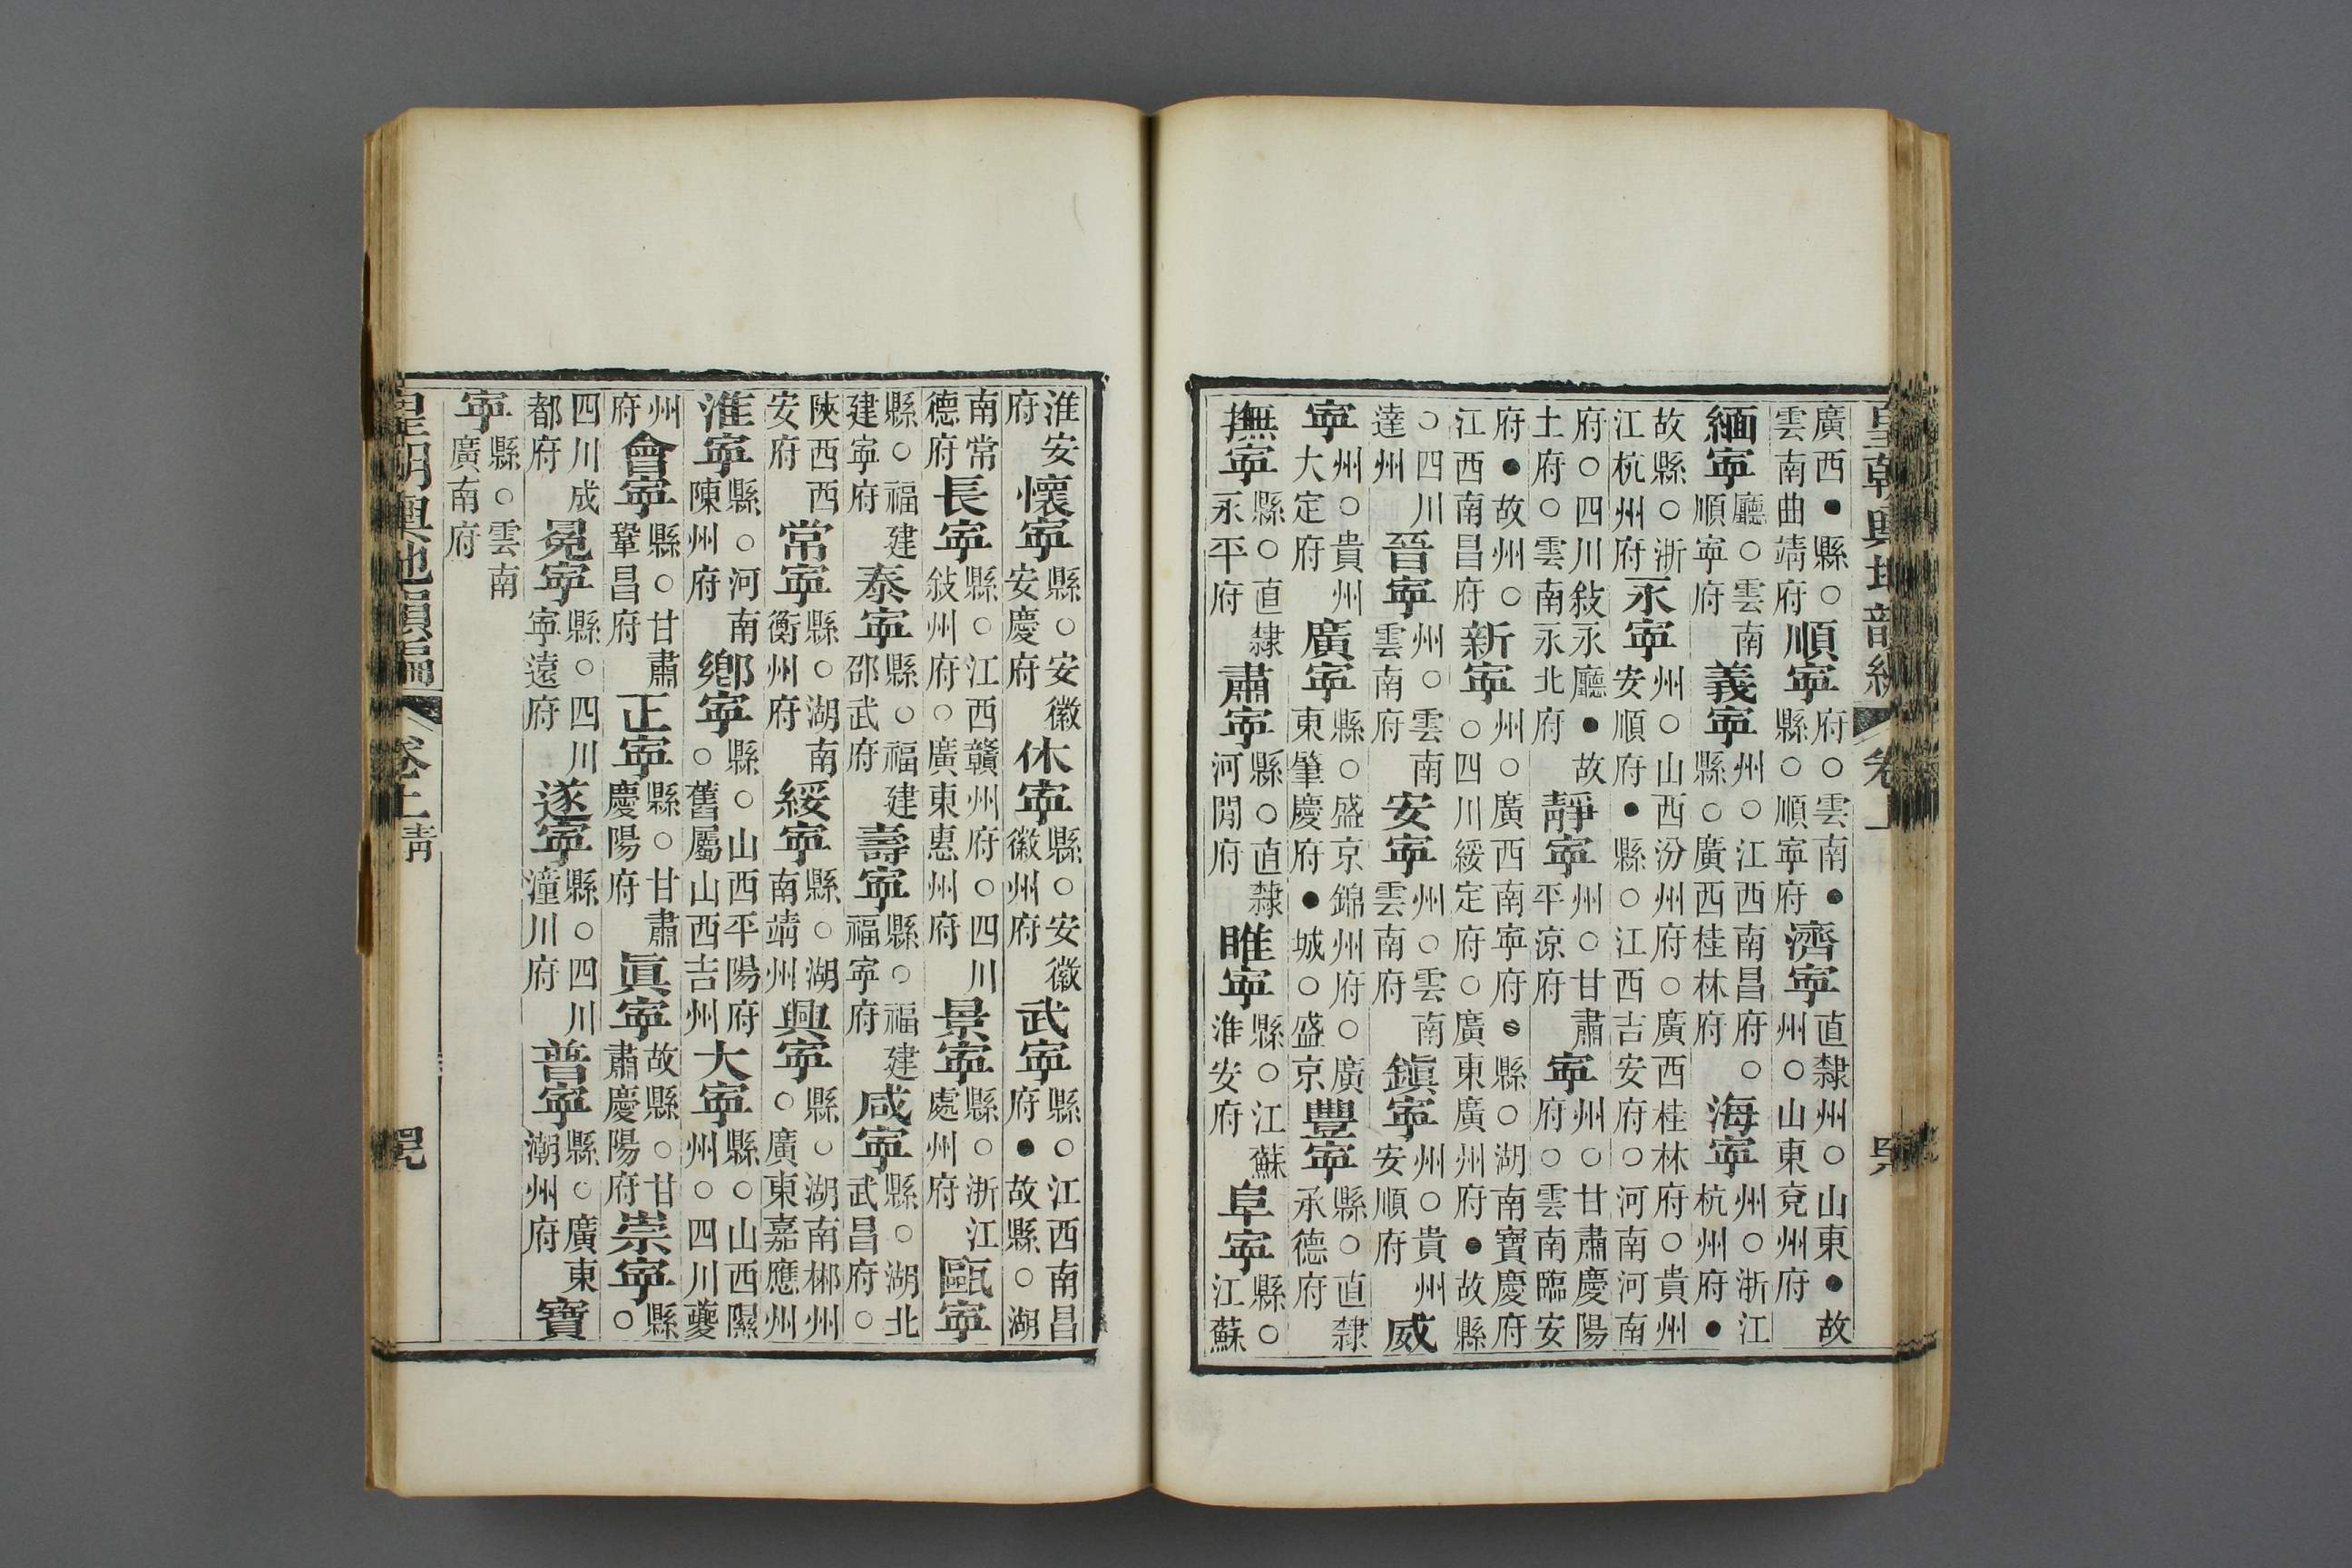 皇朝輿地韻編 卷上
廣西●縣○雲南曲靖府順寧府○雲南●縣○順寧府濟寧直隸州○山東●故州○山東兗州府
緬寧廳○雲南順寧府義寧州○江西南昌府○縣○廣西桂林府海寧州○浙江杭州府●
故縣○浙江杭州府永寧州○山西汾州府○廣西桂林府○貴州安順府●縣○江西吉安府○河南河南
府○四川敍永廳●故土府○雲南永北府靜寧州○甘肅平涼府寧州○甘肅慶陽府○雲南臨安
府●故州○江西南昌府新寧州○廣西南寧府●縣○湖南寶慶府○四川綏定府○廣東廣州府●故縣
○四川達州晉寧州○雲南雲南府安寧州○雲南雲南府鎮寧州○貴州安順府威
寧州○貴州大定府廣寧縣○盛京錦州府○廣東肇慶府●城○盛京豐寧縣○直隸承德府
撫寧縣○直隸永平府肅寧縣○直隸河間府睢寧縣○江蘇淮安府阜寧縣○江蘇
淮安府懷寧縣○安徽安慶府休寧縣○安徽徽州府武寧縣○江西南昌府●故縣○湖
南常德府長寧縣○江西贛州府○四川敍州府○廣東惠州府景寧縣○浙江處州府甌寧
縣○福建建寧府泰寧縣○福建邵武府壽寧縣○福建福寧府咸寧縣○湖北武昌府○
陝西西安府常寧縣○湖南衡州府綏寧縣○湖南靖州興寧縣○湖南郴州○廣東嘉應州
淮寧縣○河南陳州府鄉寧縣○山西平陽府○舊屬山西吉州大寧縣○山西隰州○四川夔
州府會寧縣○甘肅鞏昌府正寧縣○甘肅慶陽府眞寧故縣○甘肅慶陽府崇寧縣○
四川成都府冕寧縣○四川寧遠府遂寧縣○四川潼川府普寧縣○廣東潮州府寶
寧縣○雲南廣南府
皇朝輿地韻編 卷上 青